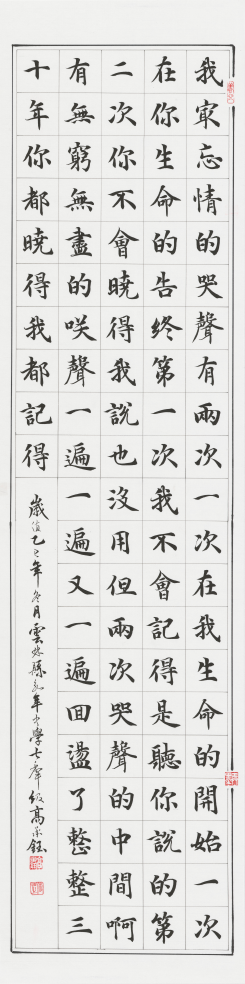 我最忘情的哭聲有兩次一次在我生命的開始一次
在你生命的告終第一次我不會記得是聽你說的第
二次你不會曉得我說也沒用但兩次哭聲的中間啊
有無窮無盡的咲聲一遍一遍又一遍回盪了整整三
十年你都曉得我都記得
歲值乙巳年冬月雲林縣 年中學七年級高 鈺